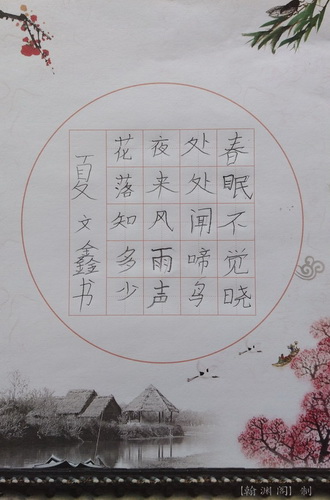 春眠不觉晓
处处闻啼鸟
夜来风雨声
花落知多少
夏文鑫书
【翰渊阁】制